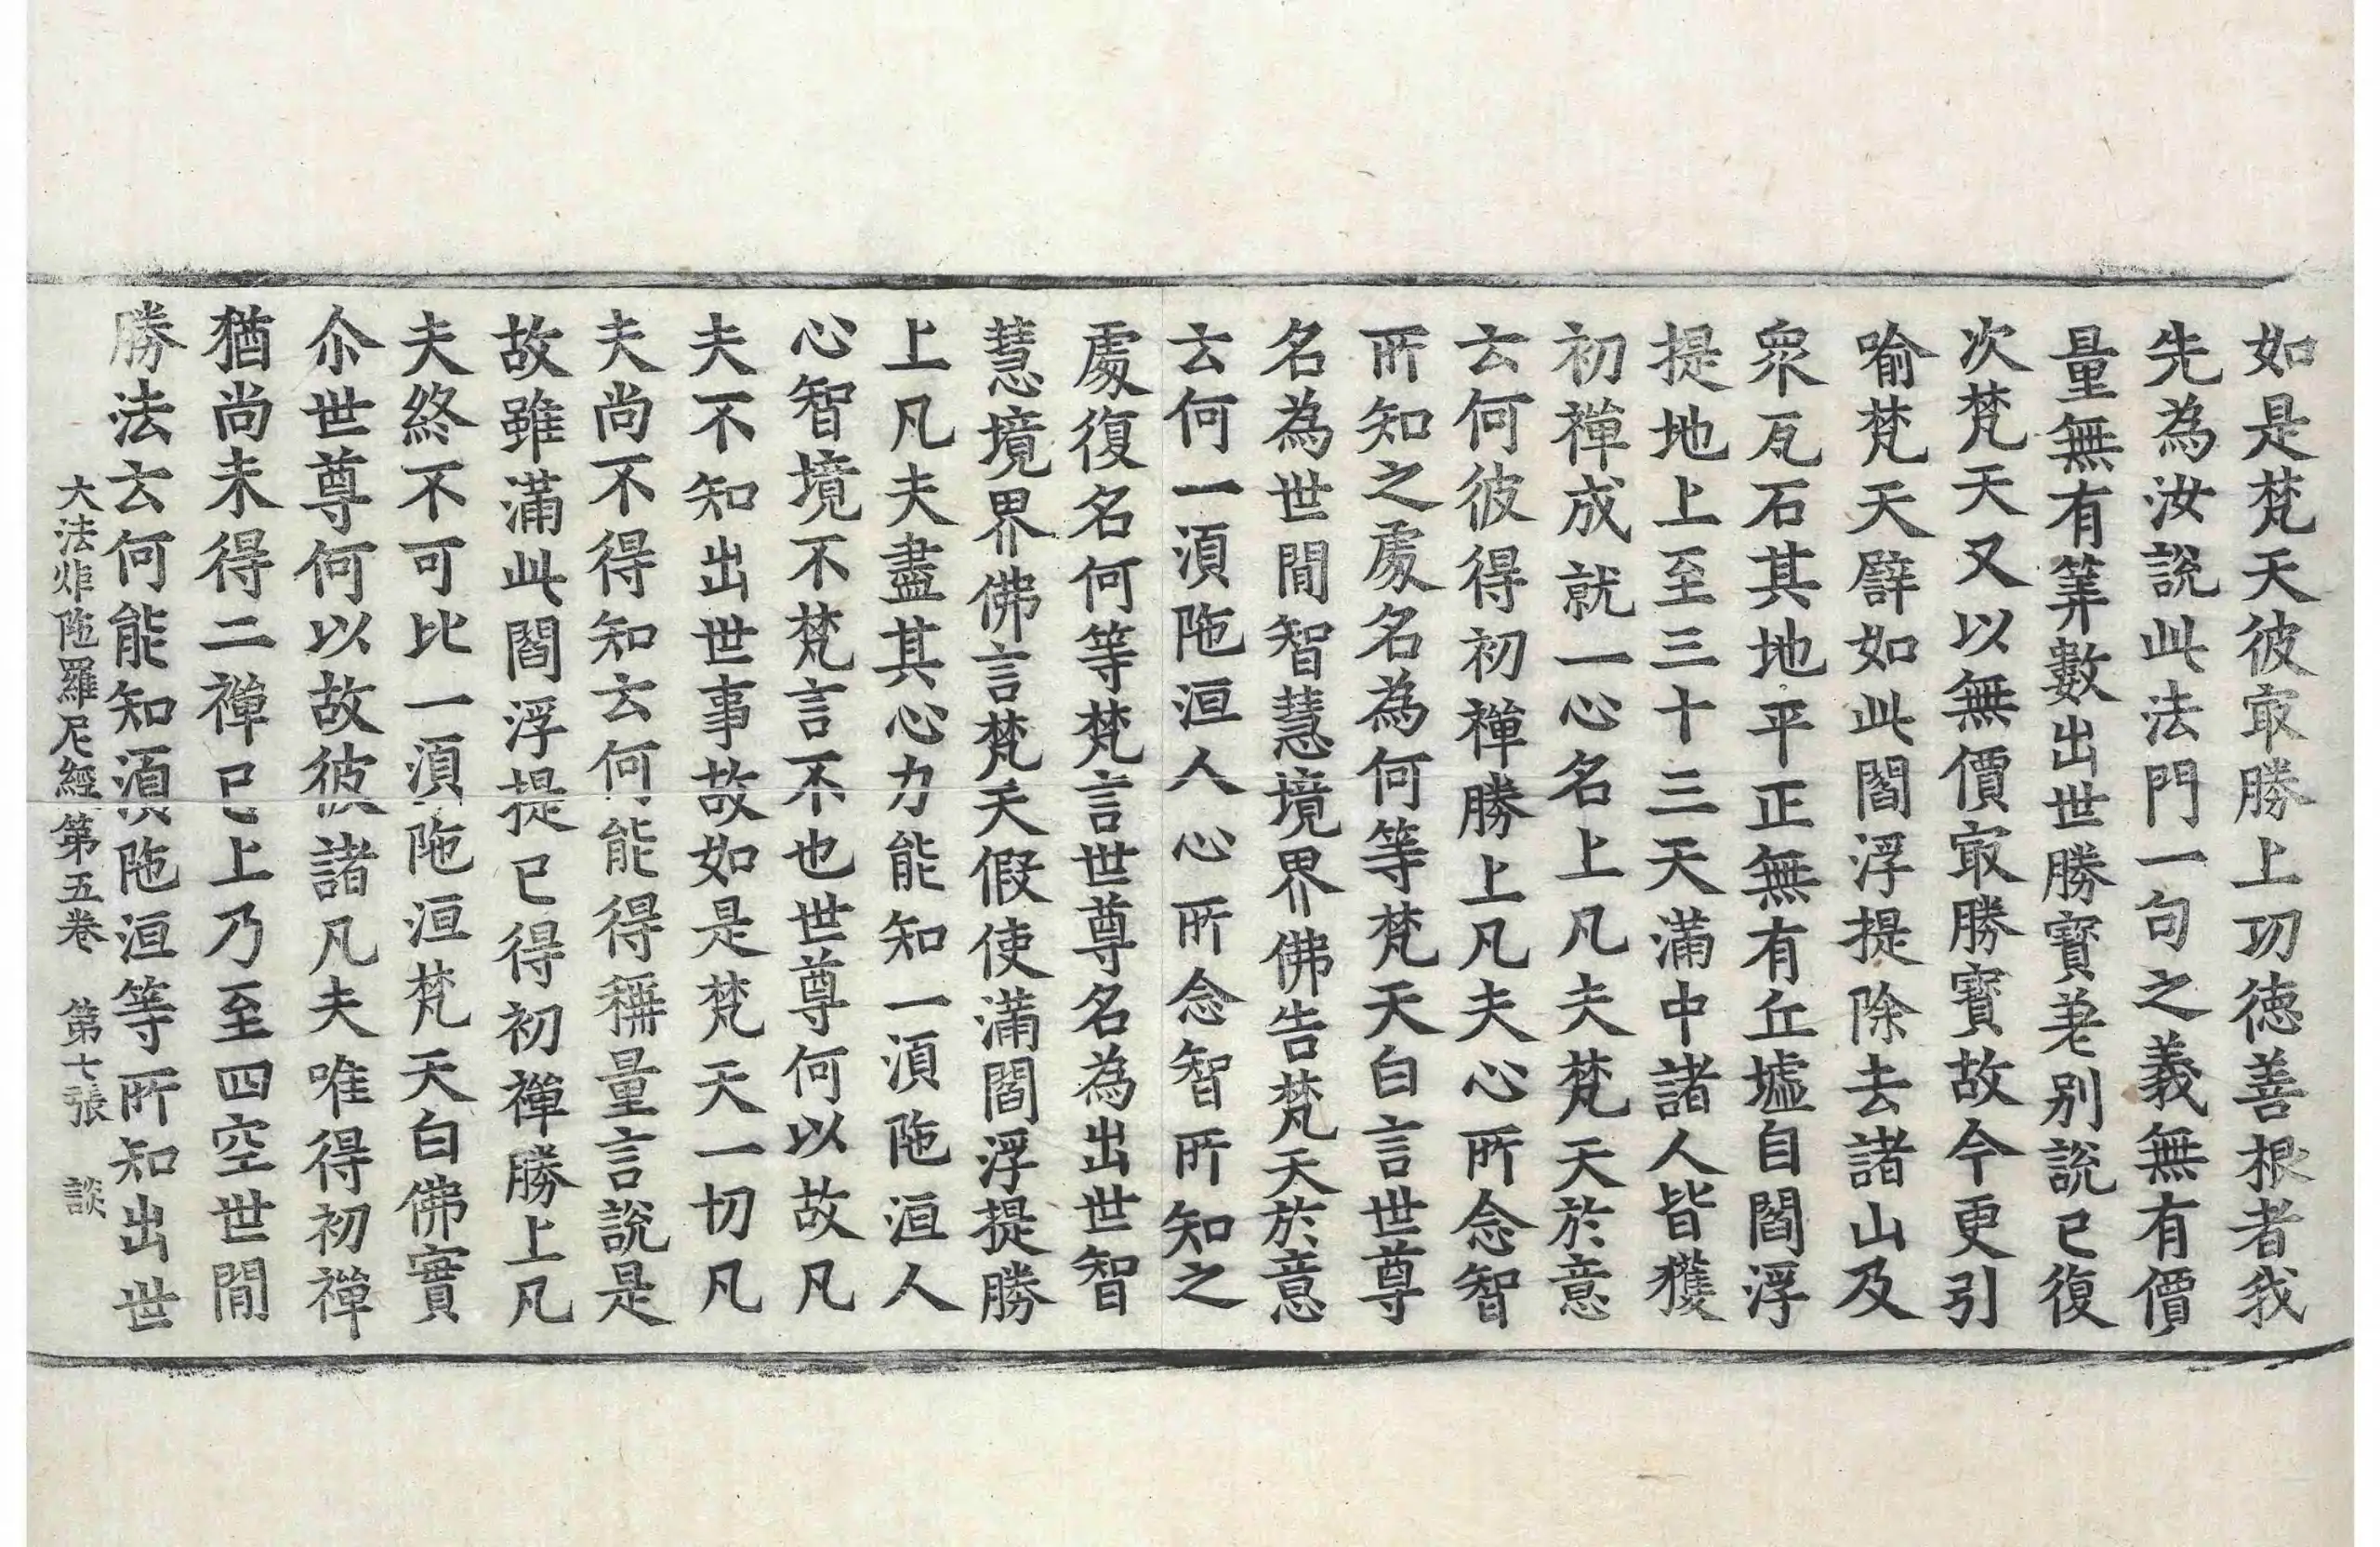 如是梵天彼㝡勝上功德善根者我
先為汝說此法門一句之義無有價
量無有筭數出世勝寶差別說已復
次梵天又以無價㝡勝寶故今更引
喻梵天譬如此閻浮提除去諸山及
衆瓦石其地平正無有丘墟自閻浮
提地上至三十三天滿中諸人皆獲
初禪成就一心名上凡夫梵天於意
云何彼得初禪勝上凡夫心所念智
所知之處名為何等梵天白言世尊
名為世間智慧境界佛告梵天於意
云何一湏陁洹人心所念智所知之
處復名何等梵言世尊名為出世智
慧境界佛言梵天假使滿閻浮提勝
上凡夫盡其心力能知一湏陁洹人
心智境不梵言不也世尊何以故凡
夫不知出世事故如是梵天一切凡
夫尚不得知云何能得稱量言說是
故雖滿此閻浮提已得初禪勝上凡
夫終不可比一湏陁洹梵天白佛實
尒世尊何以故彼諸凡夫唯得初禪
猶尚未得二禪已上乃至四空世間
勝法云何能知湏陁洹等所知出世
大法炬陁羅尼經第五卷 第七張 談